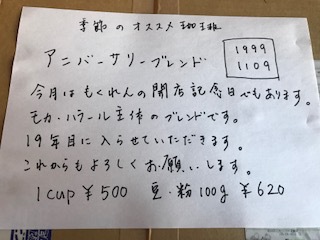 季節のオススメ珈琲
アニバーサリーブレンド
1999
1109
今月はもくれんの開店記念日でもあります。
モカ・ハラール主体のブレンドです。
19年目に入らせていただきます。
これからもよろしくお願いします。
1cup ¥500 豆・粉100g ¥620